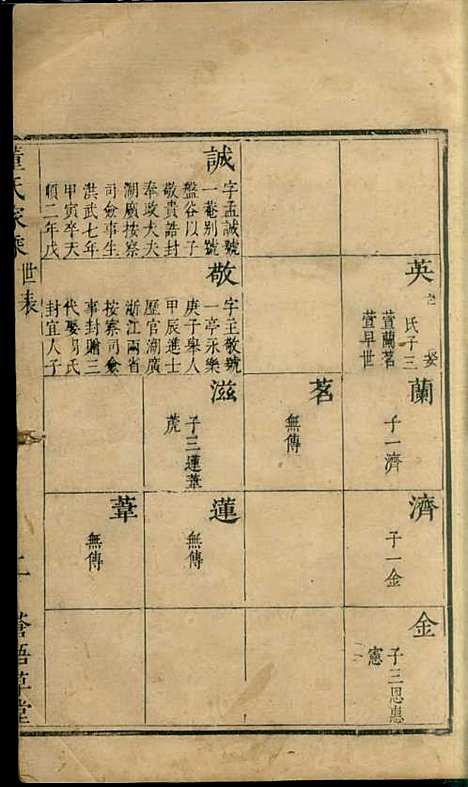 英
娶
氏子三
萱蘭茗
萱早世
蘭
子一濟
濟
子一金
金
子三恩惠
憲
茗
無傳
誠
字孟誠號
一菴別號
盤谷以子
敬貴誥封
奉政大夫
湖廣按察
司僉事生
洪武七年
甲寅卒天
順二年戊
敬
字主敬號
一亭永樂
庚子舉人
甲辰進士
歷官湖廣
浙江兩省
按察司僉
事封贈三
代娶周氏
封宜人子
滋
子三蓮葦
虎
蓮
無傳
葦
無傳
董氏家乘
世表
二
蒼梧草堂